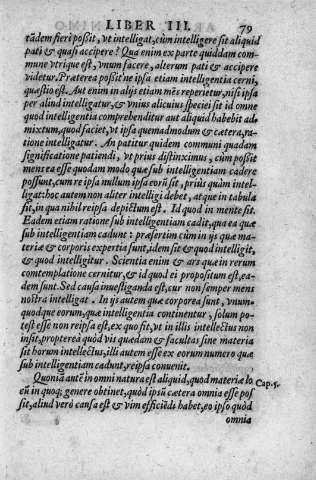 LIBER III. 79
tādem fieri possit, vt intelligat, cùm intelligere sit aliquid
pati & quasi accipere? Qua enim ex parte quiddam com-
mune vtrique est, vnum facere, alterum pati & accipere
videtur. Præterea possit'ne ipsa etiam intelligentia cerni,
quæstio est. Aut enim in alijs etiam mēs reperietur, nisi ipsa
per aliud intelligatur, & vnius alicuius speciei sit id omne
quod intelligentia comprehenditur aut aliquid habebit ad-
mixtum, quod faciet, vt ipsa quemadmodum & cætera, ra-
tione intelligatur. An patitur quidem communi quadam
significatione patiendi, vt prius distinximus, cùm possit
mens ea esse quodam modo quæ sub intelligentiam cadere
possunt, cum re ipsa nullum ipsa eorū sit, priùs quàm intel-
ligat: hoc autem non aliter intelligi debet, atque in tabula
sit, in qua nihil reipsa depictum est. Id quod in mente sit.
Eadem etiam ratione sub intelligentiam cadit, qua ea quæ
sub intelligentiam cadunt: præsertim cùm in ijs quæ ma-
teriæ & corporis expertia sunt, idem sit & quod intelligit,
& quod intelligitur. Scientia enim & ars quæ in rerum
contemplatione cernitur, & id quod ei propositum est, ea-
dem sunt. Sed causa inuestiganda est, cur non semper mens
nostra intelligat. In ijs autem quæ corporea sunt, vnum-
quodque eorum, quæ intelligentia continentur, solum po-
test esse non reipsa est, ex quo fit, vt in illis intellectus non
insit, propterea quòd vis quædam & facultas sine materia
sit horum intellectus, illi autem esse ex eorum numero quæ
sub intelligentiam cadunt, reipsa conuenit.
Quoniā autē in omni natura est aliquid, quod materiæ lo Cap. 5.
cū in quoq; genere obtinet, quòd ipsū cætera omnia esse pos
sit, aliud verò causa est & vim efficiēdi habet, eo ipso quòd
omnia